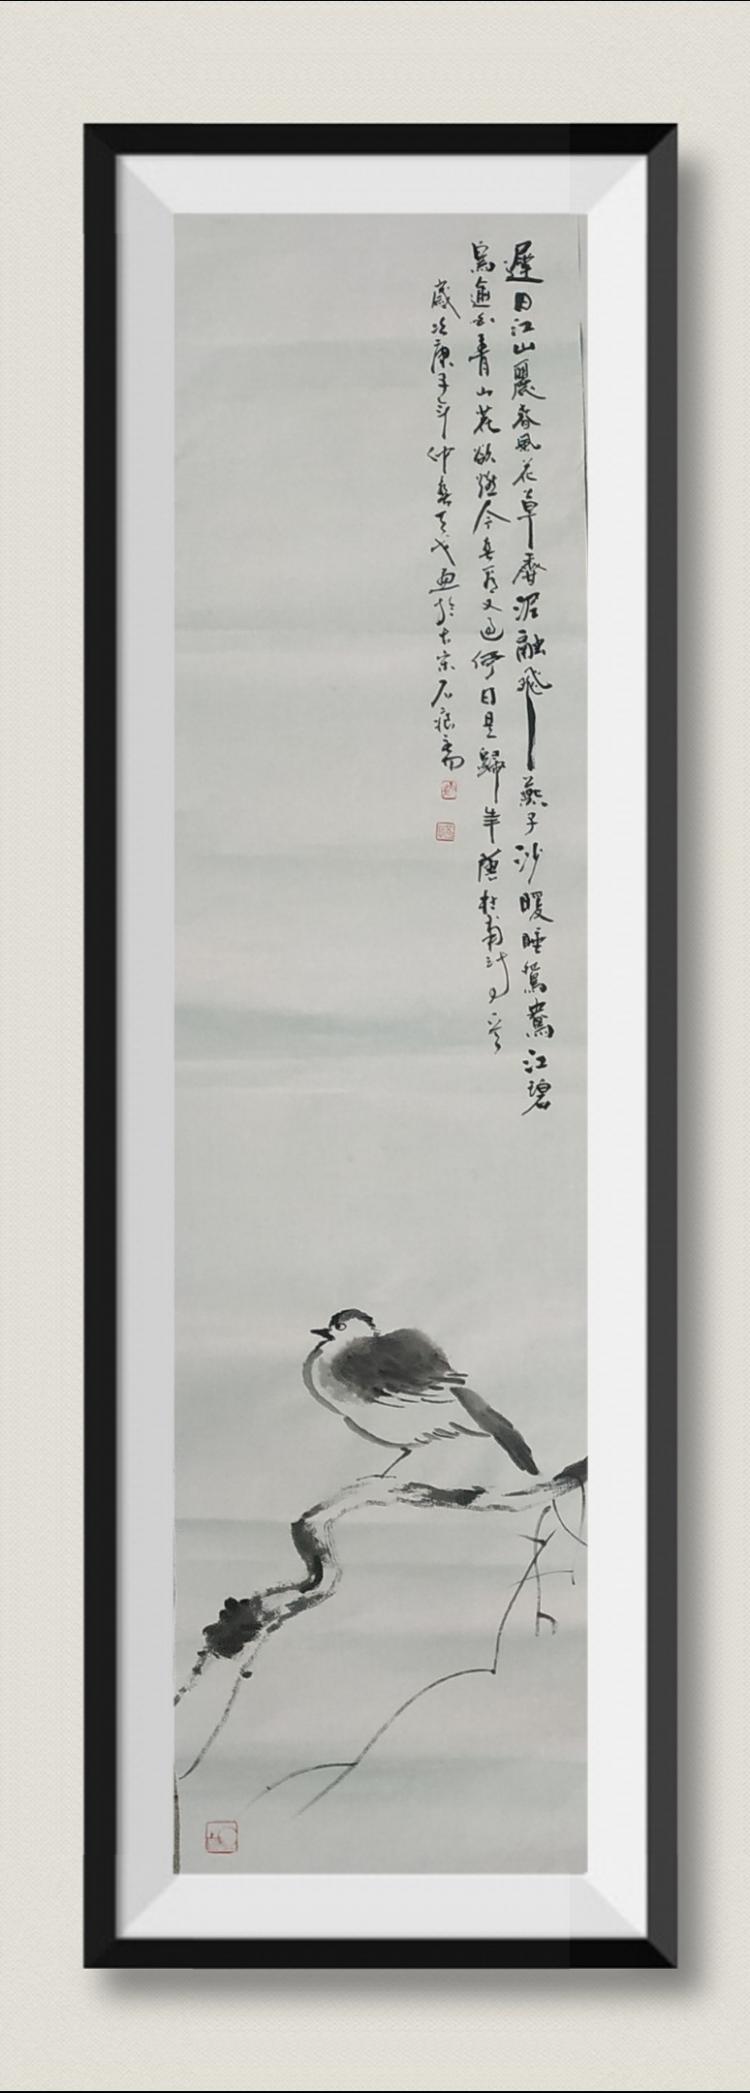 遲日江山麗春風花草香泥融飛燕子沙暖睡鴛鴦江碧
鳥逾白青山花欲燃今春看又過何日是歸年 杜甫詩
歲次庚子年仲春 畫於 石痕齋